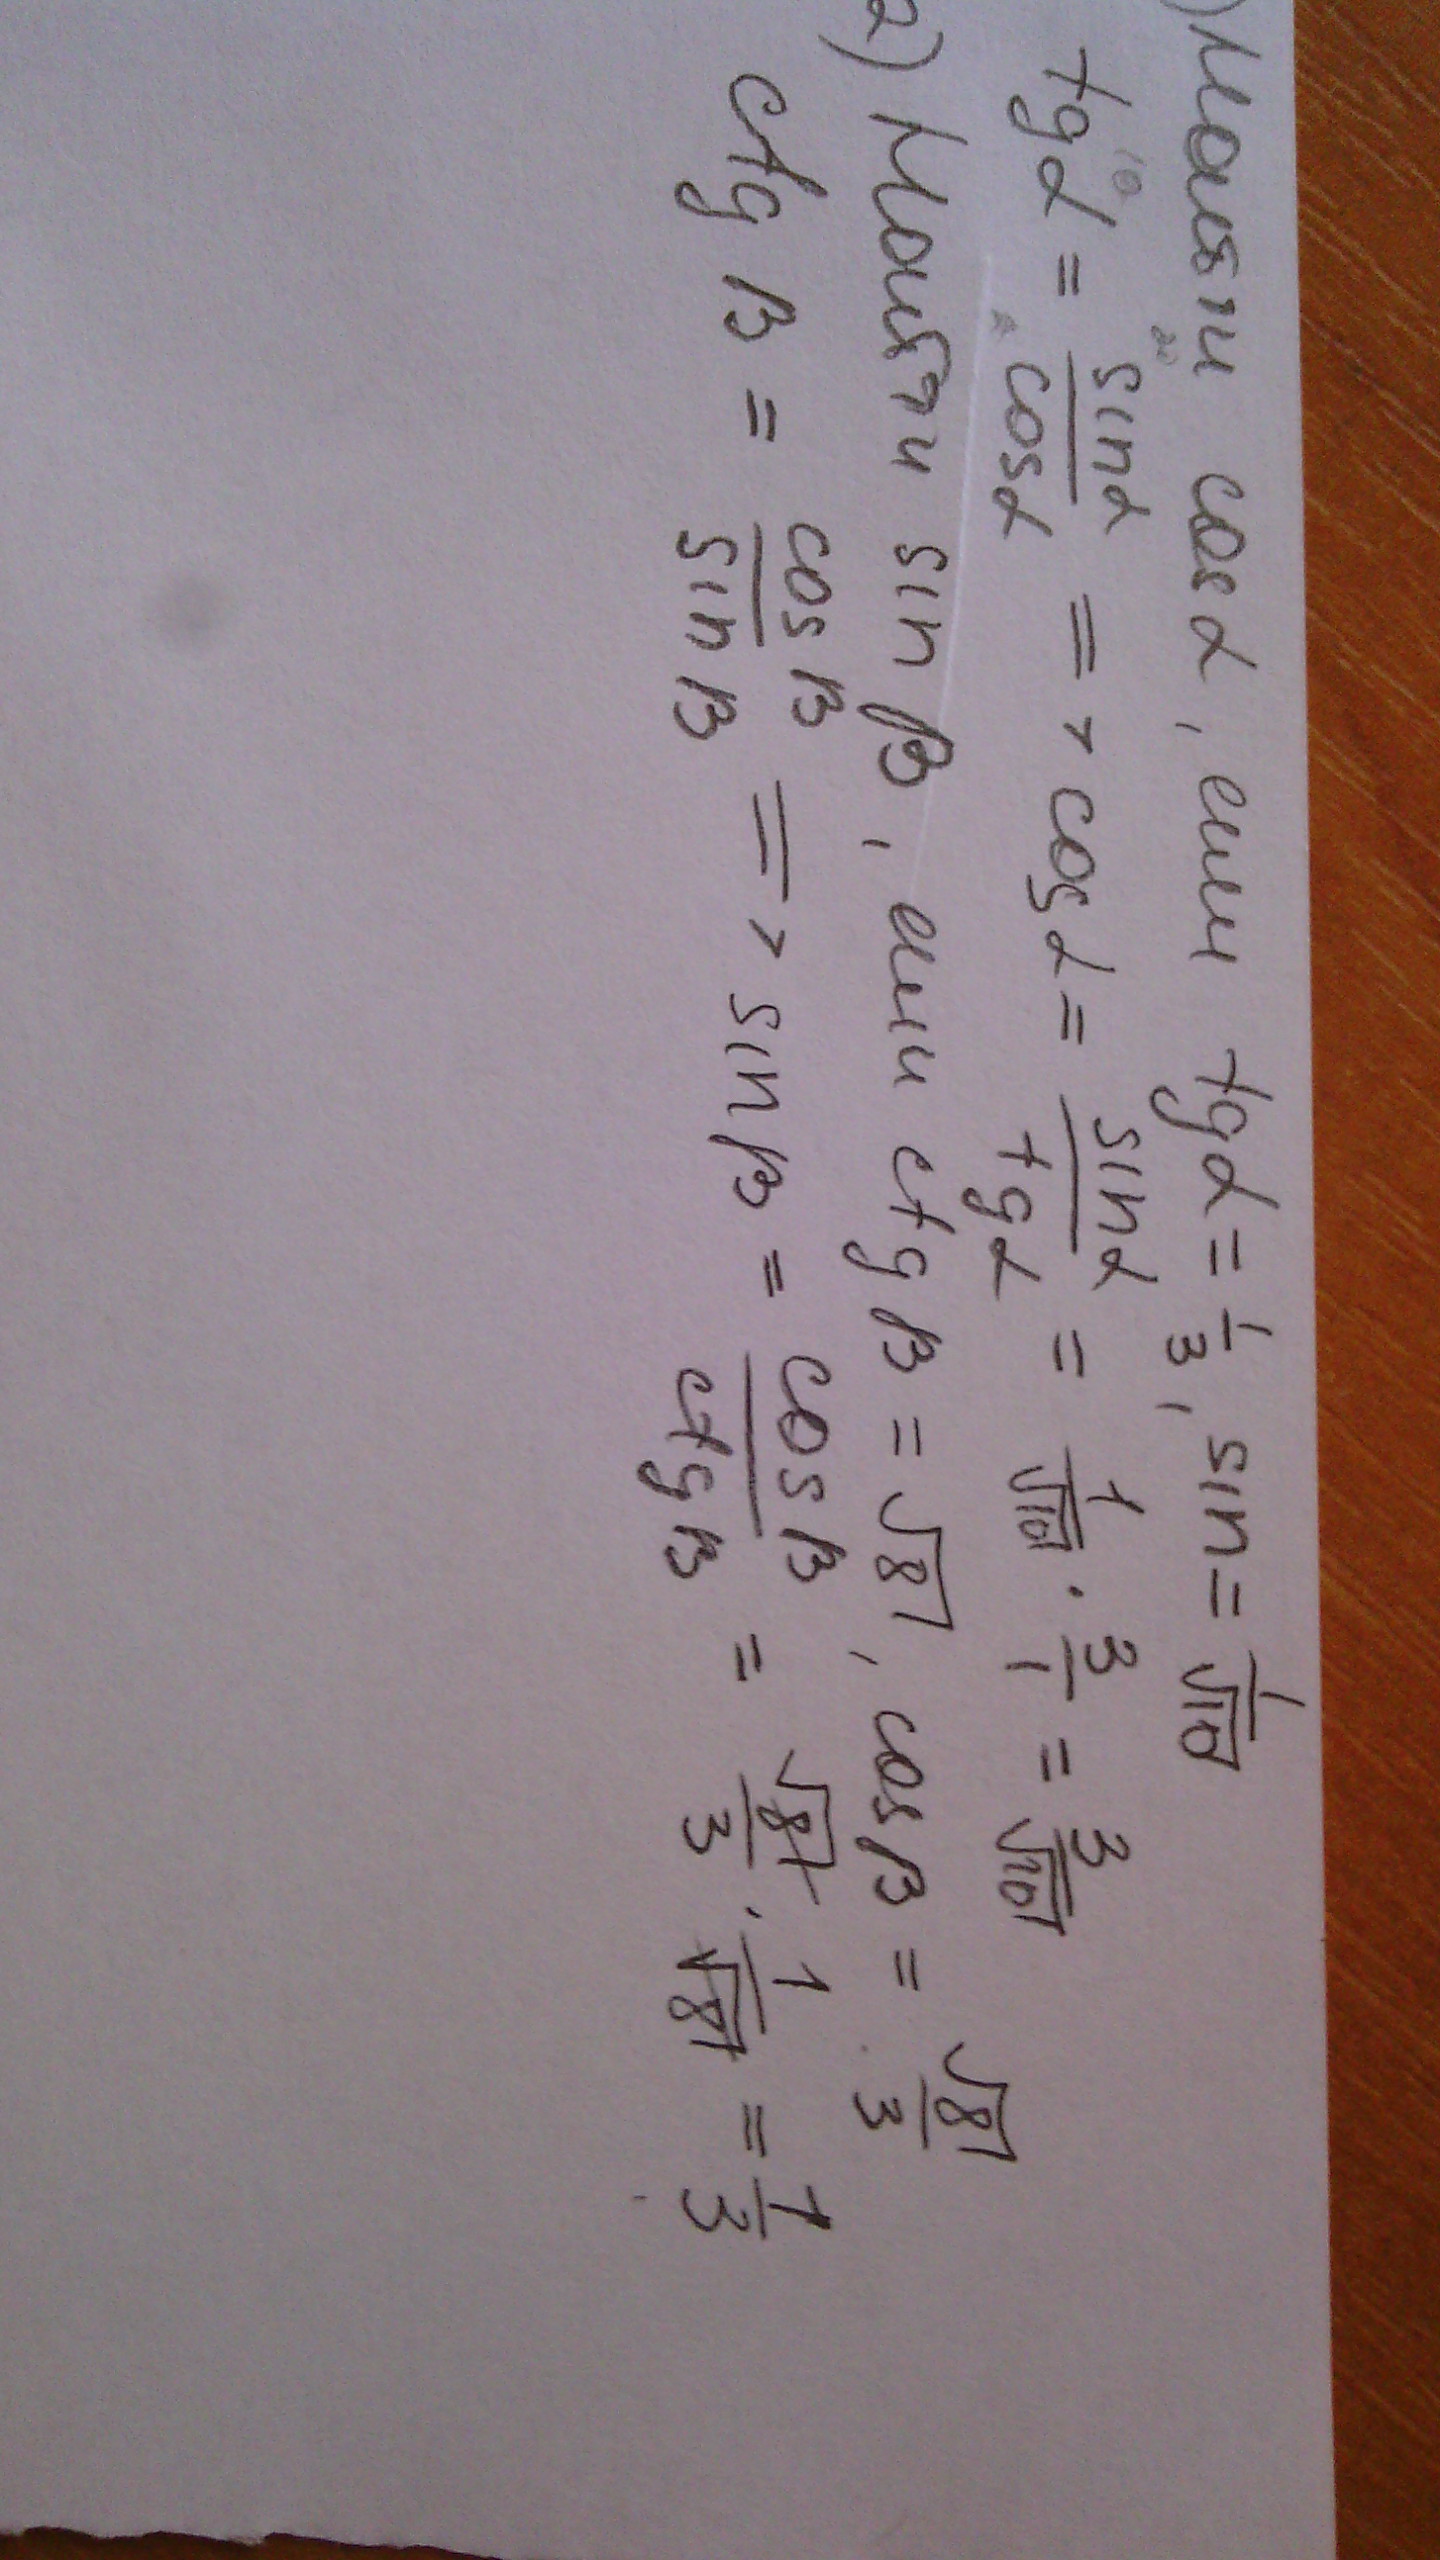 ) Найти cosα, если tgα = 1/3, sin = 1/√10
tgα = sinα/cosα => cosα = sinα/tgα = 1/√10 · 3/1 = 3/√10
2) Найти sin β, если ctg β = √8, cos β = √8/3
ctg β = cos β/sin β => sin β = cos β/ctg β = √8/3 · 1/√8 = 1/3